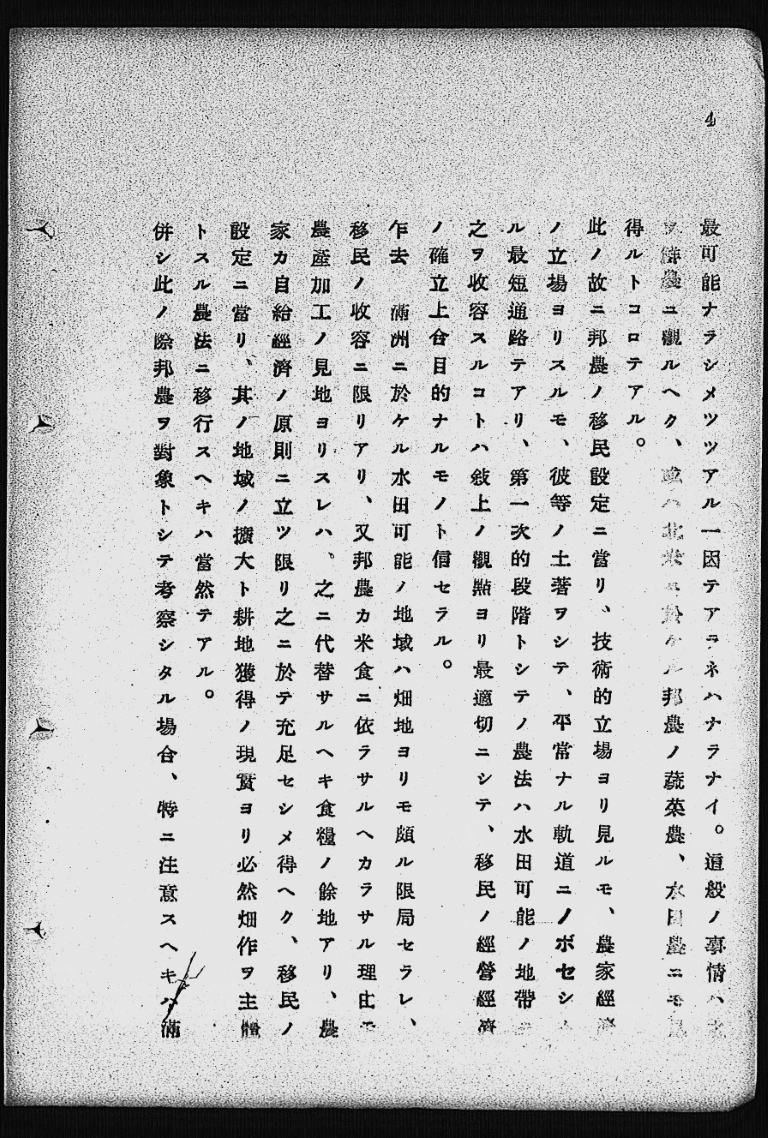 4
最可能ナラシメツツアル一因テアラネハナラナイ。這般ノ事情ハ
ヲ鮮農ニ觀ルヘク、ケル邦農ノ蔬菜農、水田農ニモ
得ルトコロテアル。
此ノ故ニ邦農ノ移民設定ニ當リ、技術的立場ヨリ見ルモ、農家經濟
ノ立場ヨリスルモ、彼等ノ土著ヲシテ、平常ナル軌道ニノボセシ
ル最短通路テアリ、第一次的段階トシテノ農法ハ水田可能ノ地帶ニ
之ヲ收容スルコトハ敍上ノ觀點ヨリ最適切ニシテ、移民ノ經營經濟
ノ確立上合目的ナルモノト信セラル。
乍去　滿洲ニ於ケル水田可能ノ地域ハ畑地ヨリモ頗ル限局セラレ、
移民ノ收容ニ限リアリ、又邦農カ米食ニ依ラサルヘカラサル理由モ
農產加工ノ見地ヨリスレハ、之ニ代替サルヘキ食糧ノ餘地アリ、農
家カ自給經濟ノ原則ニ立ツ限リ之ニ於テ充足セシメ得ヘク、移民ノ
設定ニ當リ、其ノ地域ノ擴大ト耕地獲得ノ現實ヨリ必然畑作ヲ主體
トスル農法ニ移行スヘキハ當然テアル。
併シ此ノ際邦農ヲ對象トシテ考察シタル場合、特ニ注意スヘキハ滿